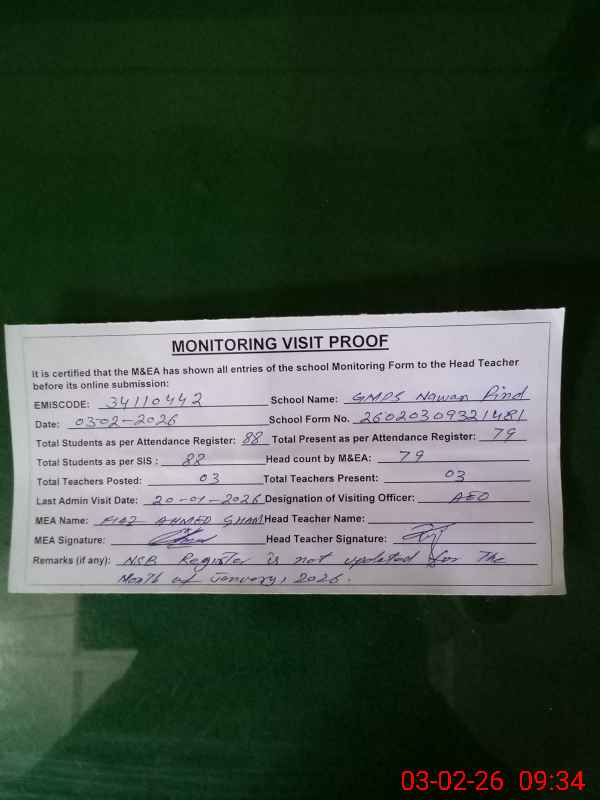 MONITORING VISIT PROOF
It is certified that the M&EA has shown all entries of the school Monitoring Form to the Head Teacher
before its online submission:
EMISCODE: 34110442 School Name: GMPS Nawan Pind
Date: 0302-2026 School Form No. 26020309321481
Total Students as per Attendance Register: 88 Total Present as per Attendance Register: 79
Total Students as per SIS : 88 Head count by M&EA: 79
Total Teachers Posted: 03 Total Teachers Present: 03
Last Admin Visit Date: 20-01-2026 Designation of Visiting Officer: AEO
MEA Name: AHMED Head Teacher Name:
MEA Signature: Head Teacher Signature:
Remarks (if any): NSB Register is not updated for The
Month of January, 2026.
03-02-26 09:34